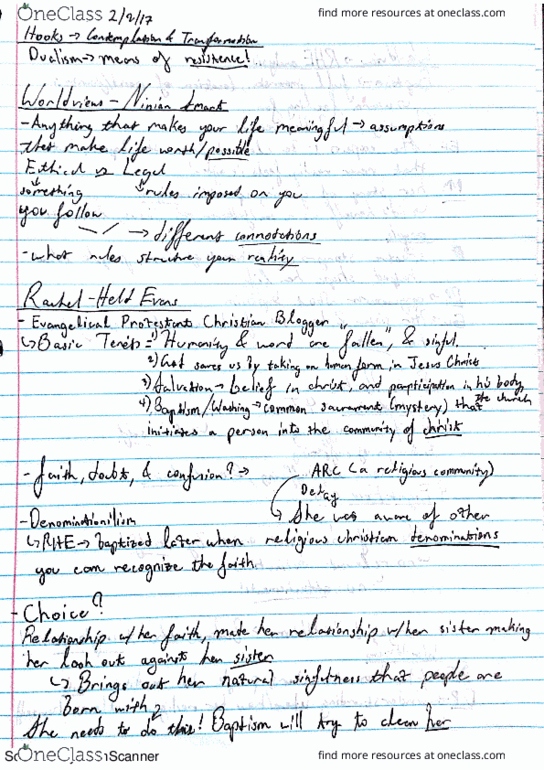 OneClass 2/2/17 find more resources at oneclass.com
Hooks → Contemplation & Transformation
Dualism → means of resistence!
Worldviews - Ninian Smart
- Anything that makes your life meaningful → assumptions
that make life worth/possible
Ethical vs Legal
something rules imposed on you
you follow
→ different connotations
- what rules structure your reality
Rachel-Held Evans
- Evangelical Protestant Christian Blogger
↳ Basic Tenets = 1) Humanity & word are "fallen", & sinful.
2) God saves us by taking on human form in Jesus Christ
3) Salvation → belief in christ, and participation in his body,
the church
4) Baptism/Washing → common sacrament (mystery) that
initiates a person into the community of christ
- faith, doubt, & confusion? → ARC (a religious community)
Delay
- Denominationilism ↳ She was aware of other
↳ RHE → baptized later when religious christian denominations
you can recognize the faith
- Choice?
Relationship w/ her faith, made her relationship w/ her sister making
her look out against her sister
↳ Brings out her natural sinfulness that people are
Born with
She needs to do this! Baptism will try to clean her
OneClass Scanner find more resources at oneclass.com